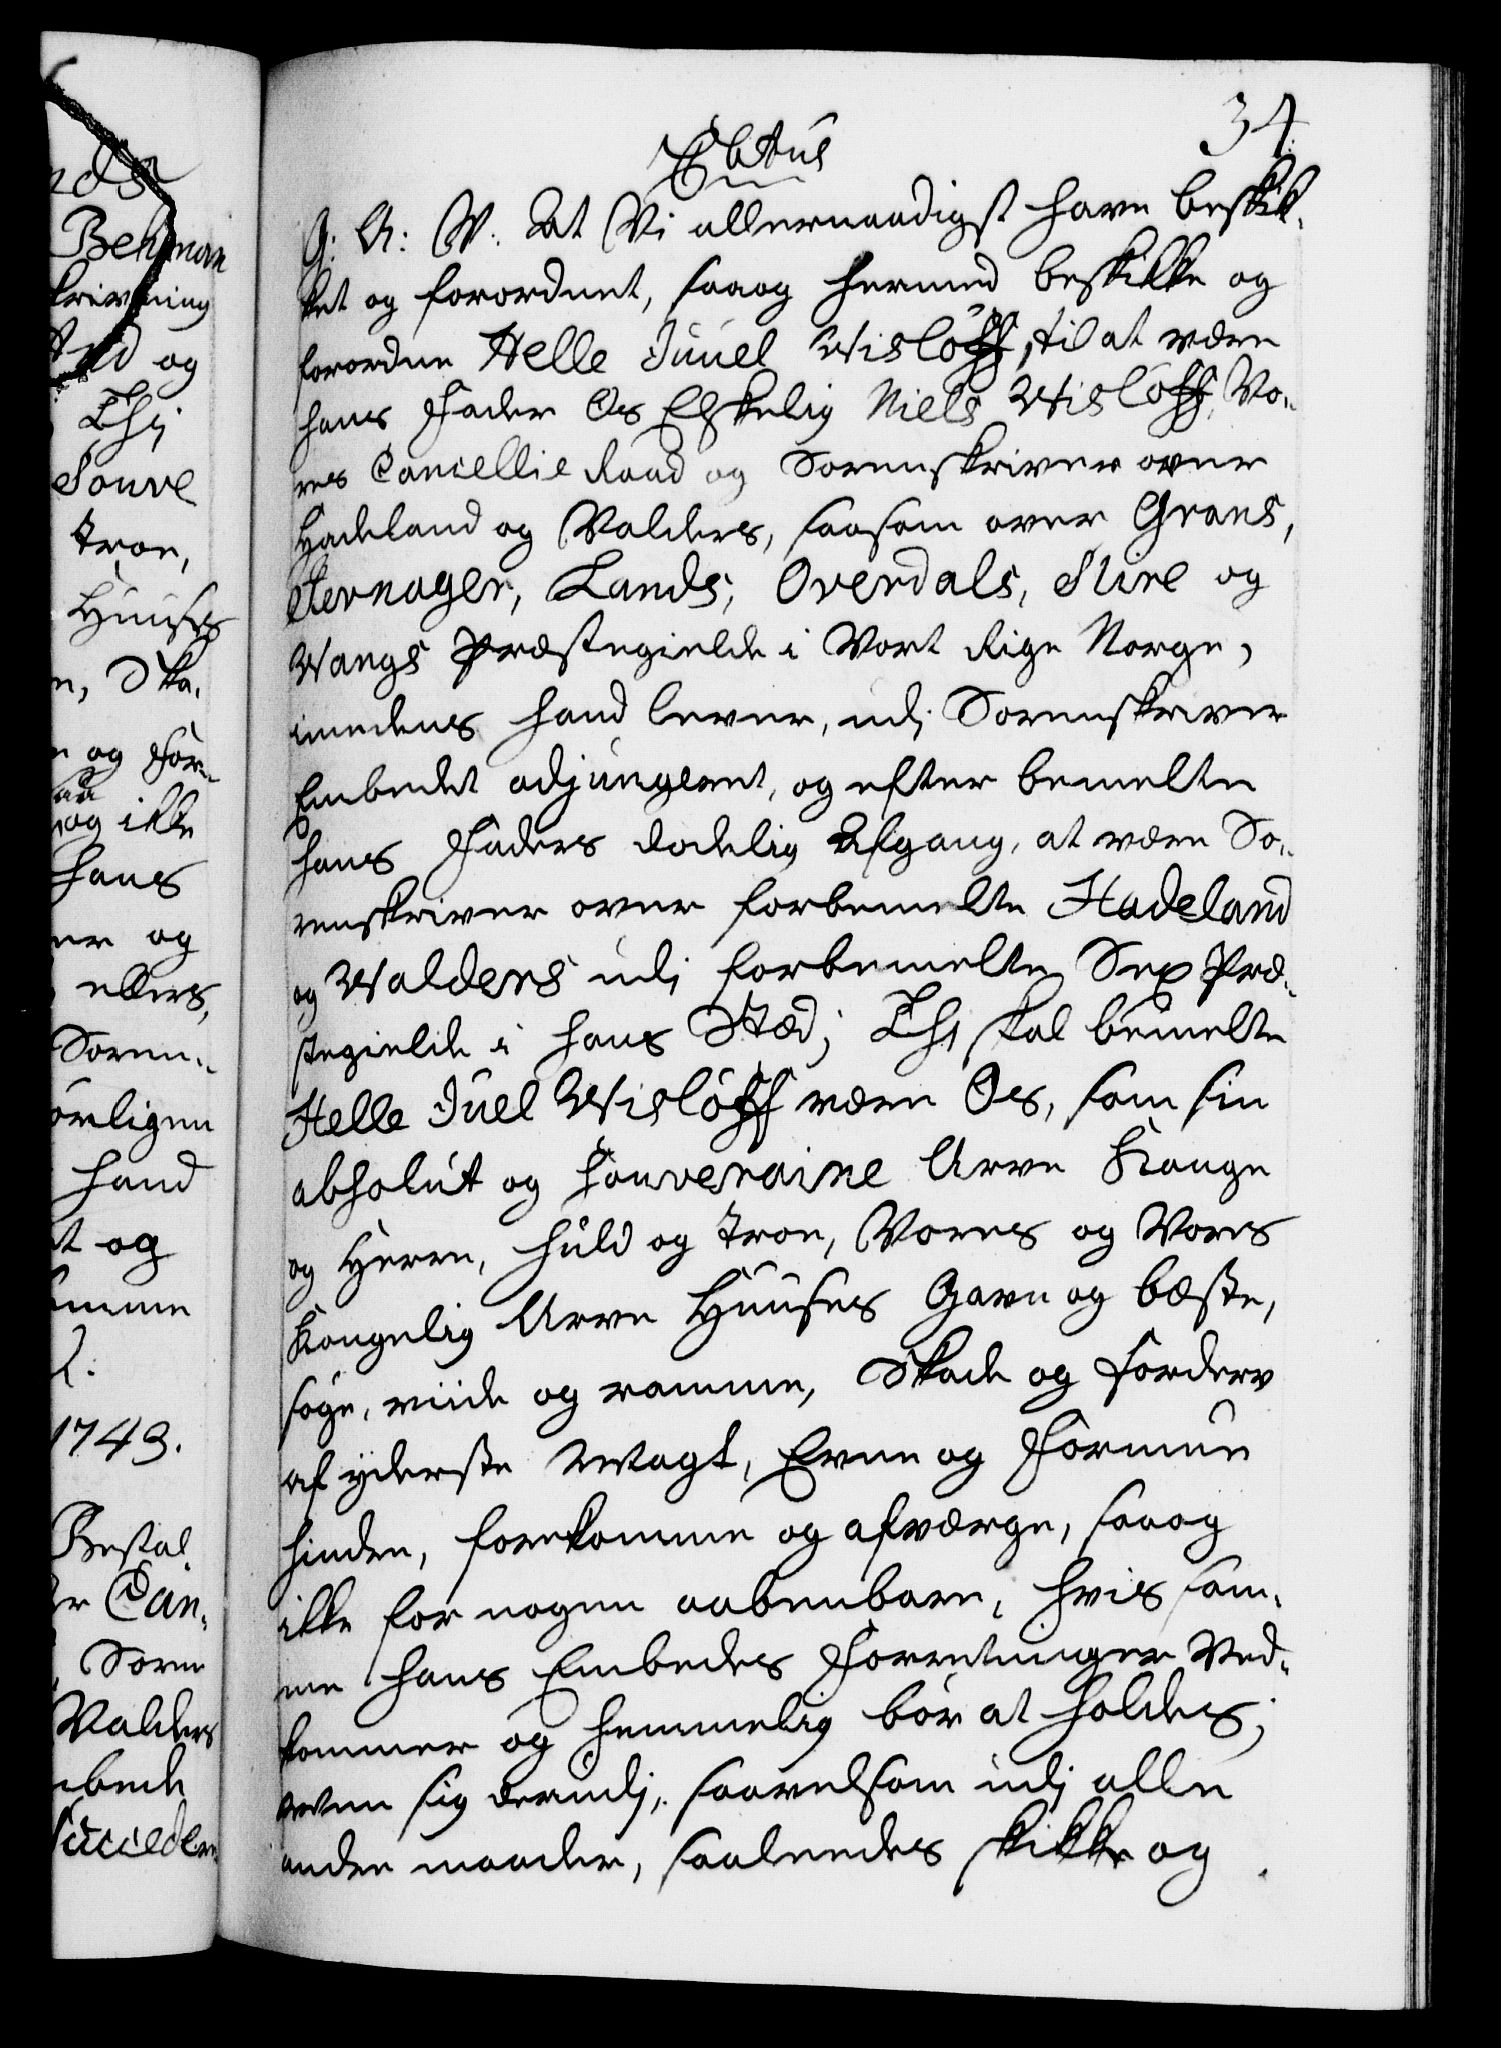 34.
G: A: W: At Vi allernaadigst have beskik-
ket og forordnet, saa og hermed beskikke og
forordne Helle Juuel Wisløff, til at være
hans Fader Os Elskelig Niels Wisløff, Vo-
res Cancellie Raad og Sorenskriver over
Hadeland og Valders, saasom over Grans,
Jevnager, Lands, Overdals, Slire og
Wangs Præstegielde i Vort Rige Norge,
imedens hand lever, udj Sorenskriver
Embedet adjungeret, og efter bemelte
hans Faders dødelig Afgang, at være So-
renskriver over forbemelte Hadeland
og Walders udj forbemelte Sex Præ-
stegielde i hans Stæd; Thj skal bemelte
Helle Juel Wisløff være Os, som sin
absolut og souveraine Arve Konge
og Herre, huld og troe, Vores og Vores
Kongelig Arve Huuses Gavn og beste,
søge, viide og ramme, Skade og Forderv
af yderste Magt, Evne og Formue
hindre, forekomme og afværge, saa og
ikke for nogen aabenbare, hvis sam-
me hans Embedes Forretninger Ved-
kommer og hemmelig bør at holdes;
Men sig derudj, saavelsom udj alle
andre maader, saaleedes skikke og
Behman
krivning
og
Thj
Souve
troe,
Huuses
Ska-
og For-
saa
og ikke
hans
er og
ellers,
Soren-
ørligen
hand
t og
1743.
Bestal
Can-
Soren
Valders
Succeder